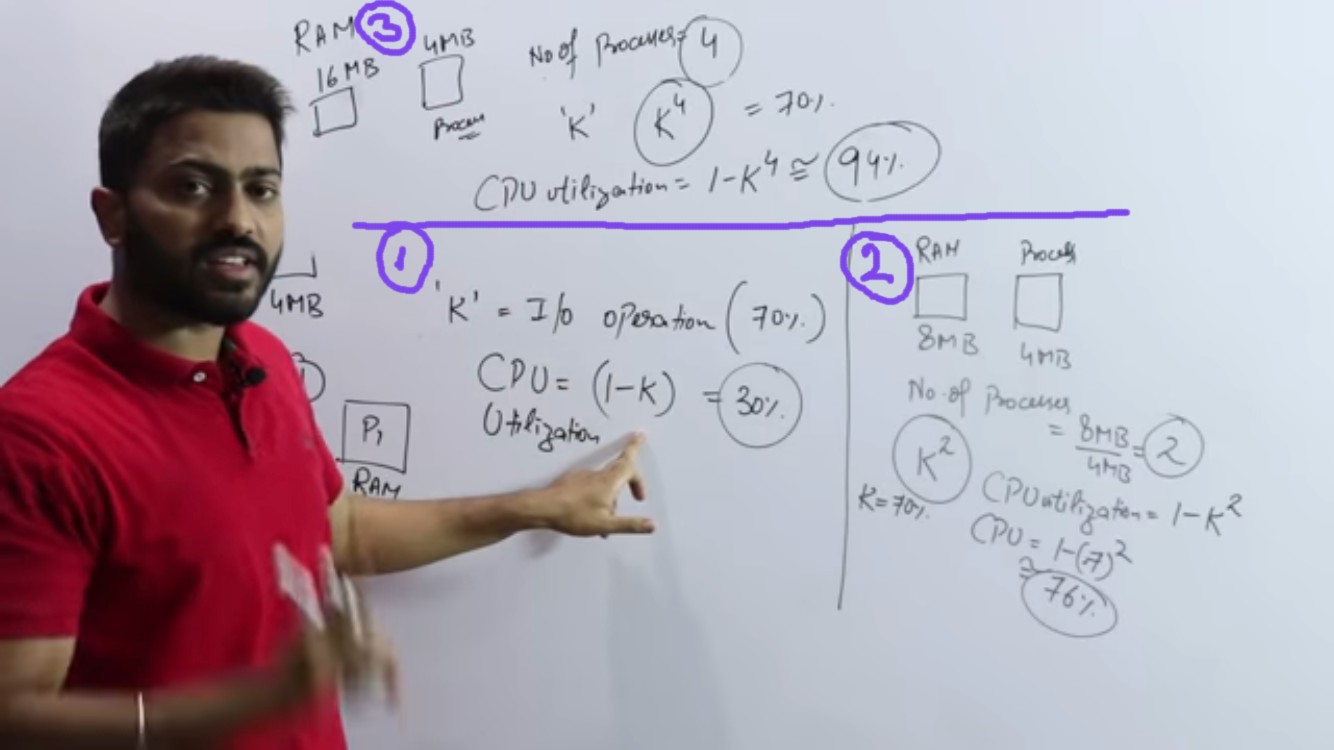 RAM ③
16 MB
4MB
Process
No of Processes = 4
'K' K⁴ = 70%.
CPU utilization = 1-K⁴ ≅ 94%.
①
4MB
'K' = I/o operation (70%.)
CPU = (1-K) = 30%.
Utilization
P₁
RAM
②
RAM Process
8MB 4MB
No. of Processes
= 8MB/4MB = 2
K²
K=70%.
CPU utilization = 1-K²
CPU = 1-(.7)²
≅ 76%.